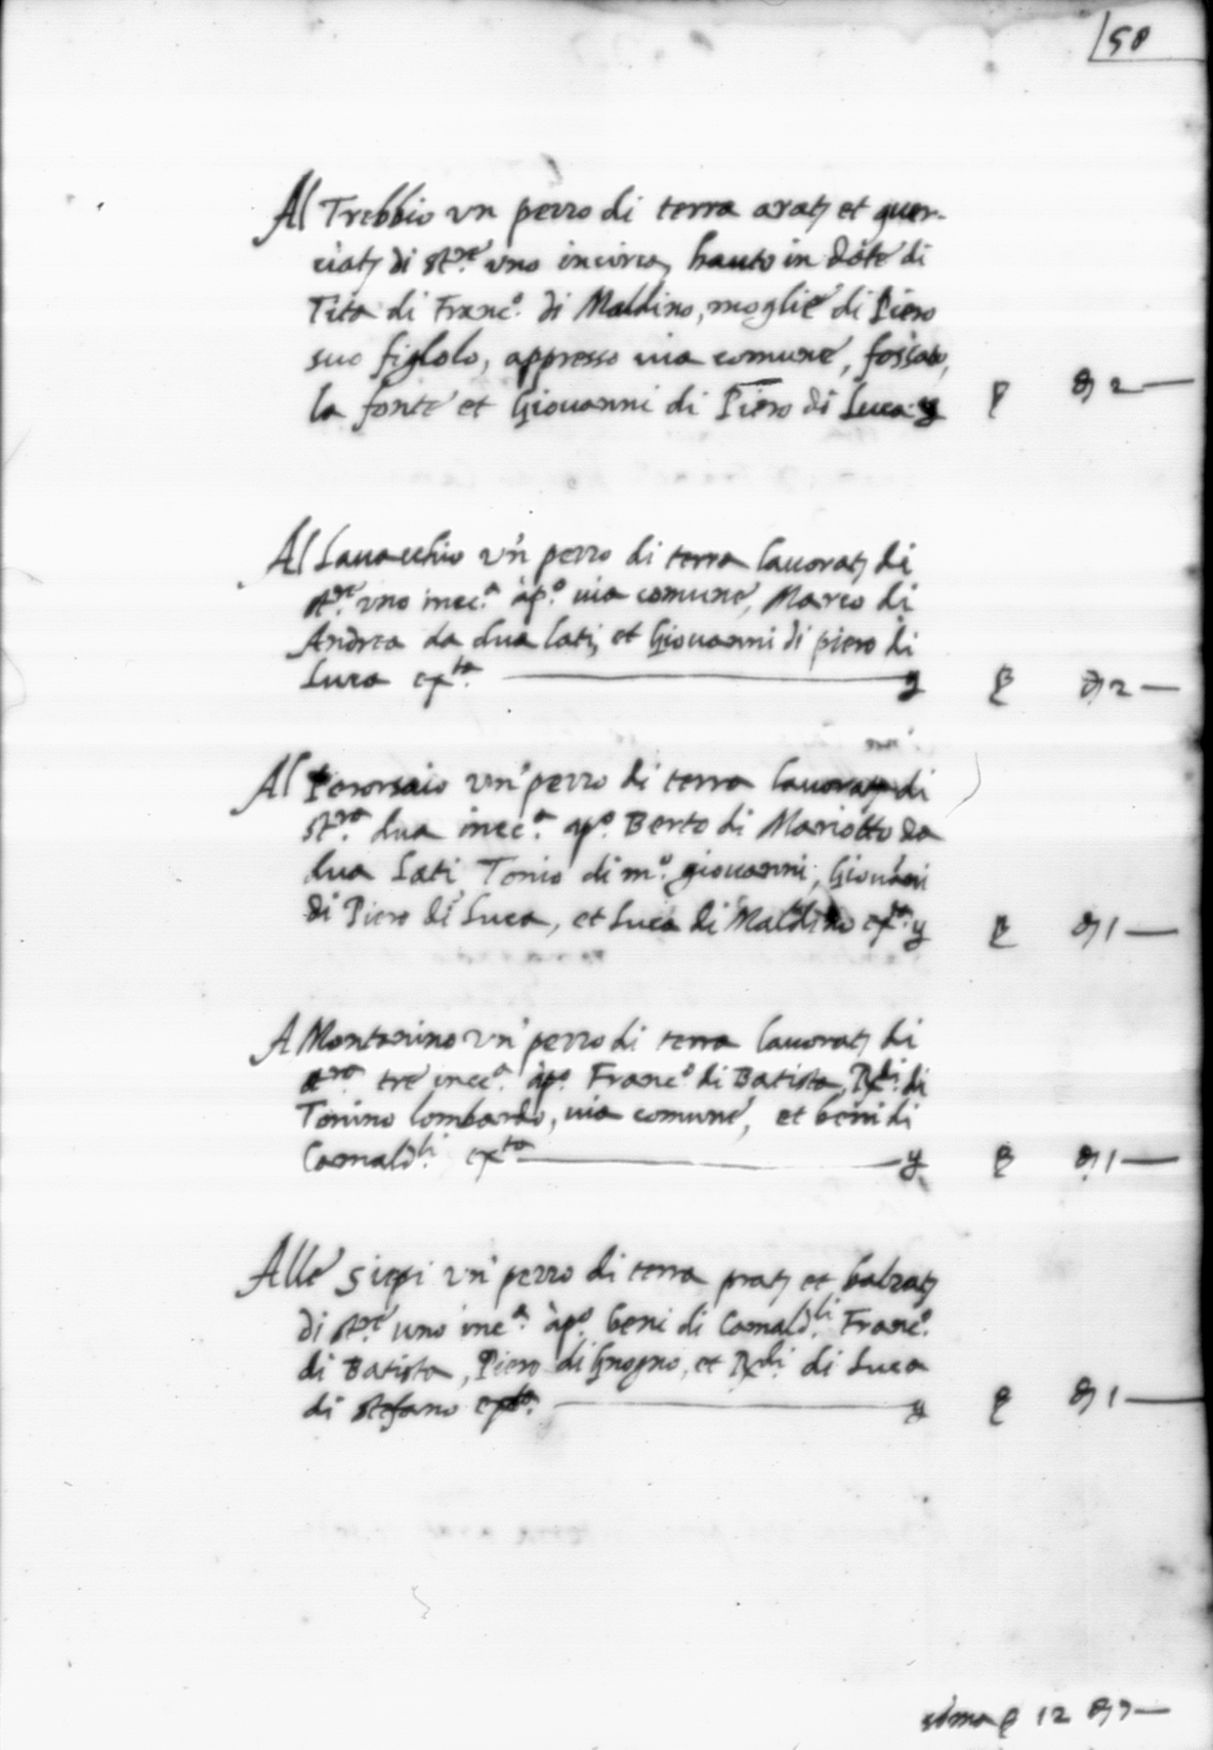 58
Al Trebbio vn pezzo di terra arat, et quer-
ciat, di st.re vno incirca, hauto in dote di
Tita di Franc.o di Maldino, moglie di Piero
suo figlolo, appresso uia comune, fossato,
la fonte et Giouanni di Piero di Luca ꝑ 2—
Al Lauacchio vn pezzo di terra lauorat, di
st.re vno inc.a ap.o uia comune, Marco di
Andrea da dua lati, et Giouanni di piero di
Luca ex.ta — 2—
Al vn pezzo di terra lauorat, di
st.ra dua inc.a ap.o Berto di Mariotto da
dua lati Tonio di m.o giouanni, Giouani
di Piero di Luca, et Luca di Maldino ex.ta 1—
A Montanino vn pezzo di terra lauorat, di
st.ra tre inc.a ap.o Franc.o di Batista, Rx.di di
Tonino lombardo, uia comune, et beni di
Camald.li ex.ta — 1—
Alle siepi vn pezzo di terra prat, et balzat,
di st.re uno inc.a ap.o beni di Camald.li Franc.o
di Batista, Piero di Gnogno, et Rx.di di Luca
di stefano — 1—
soma 12